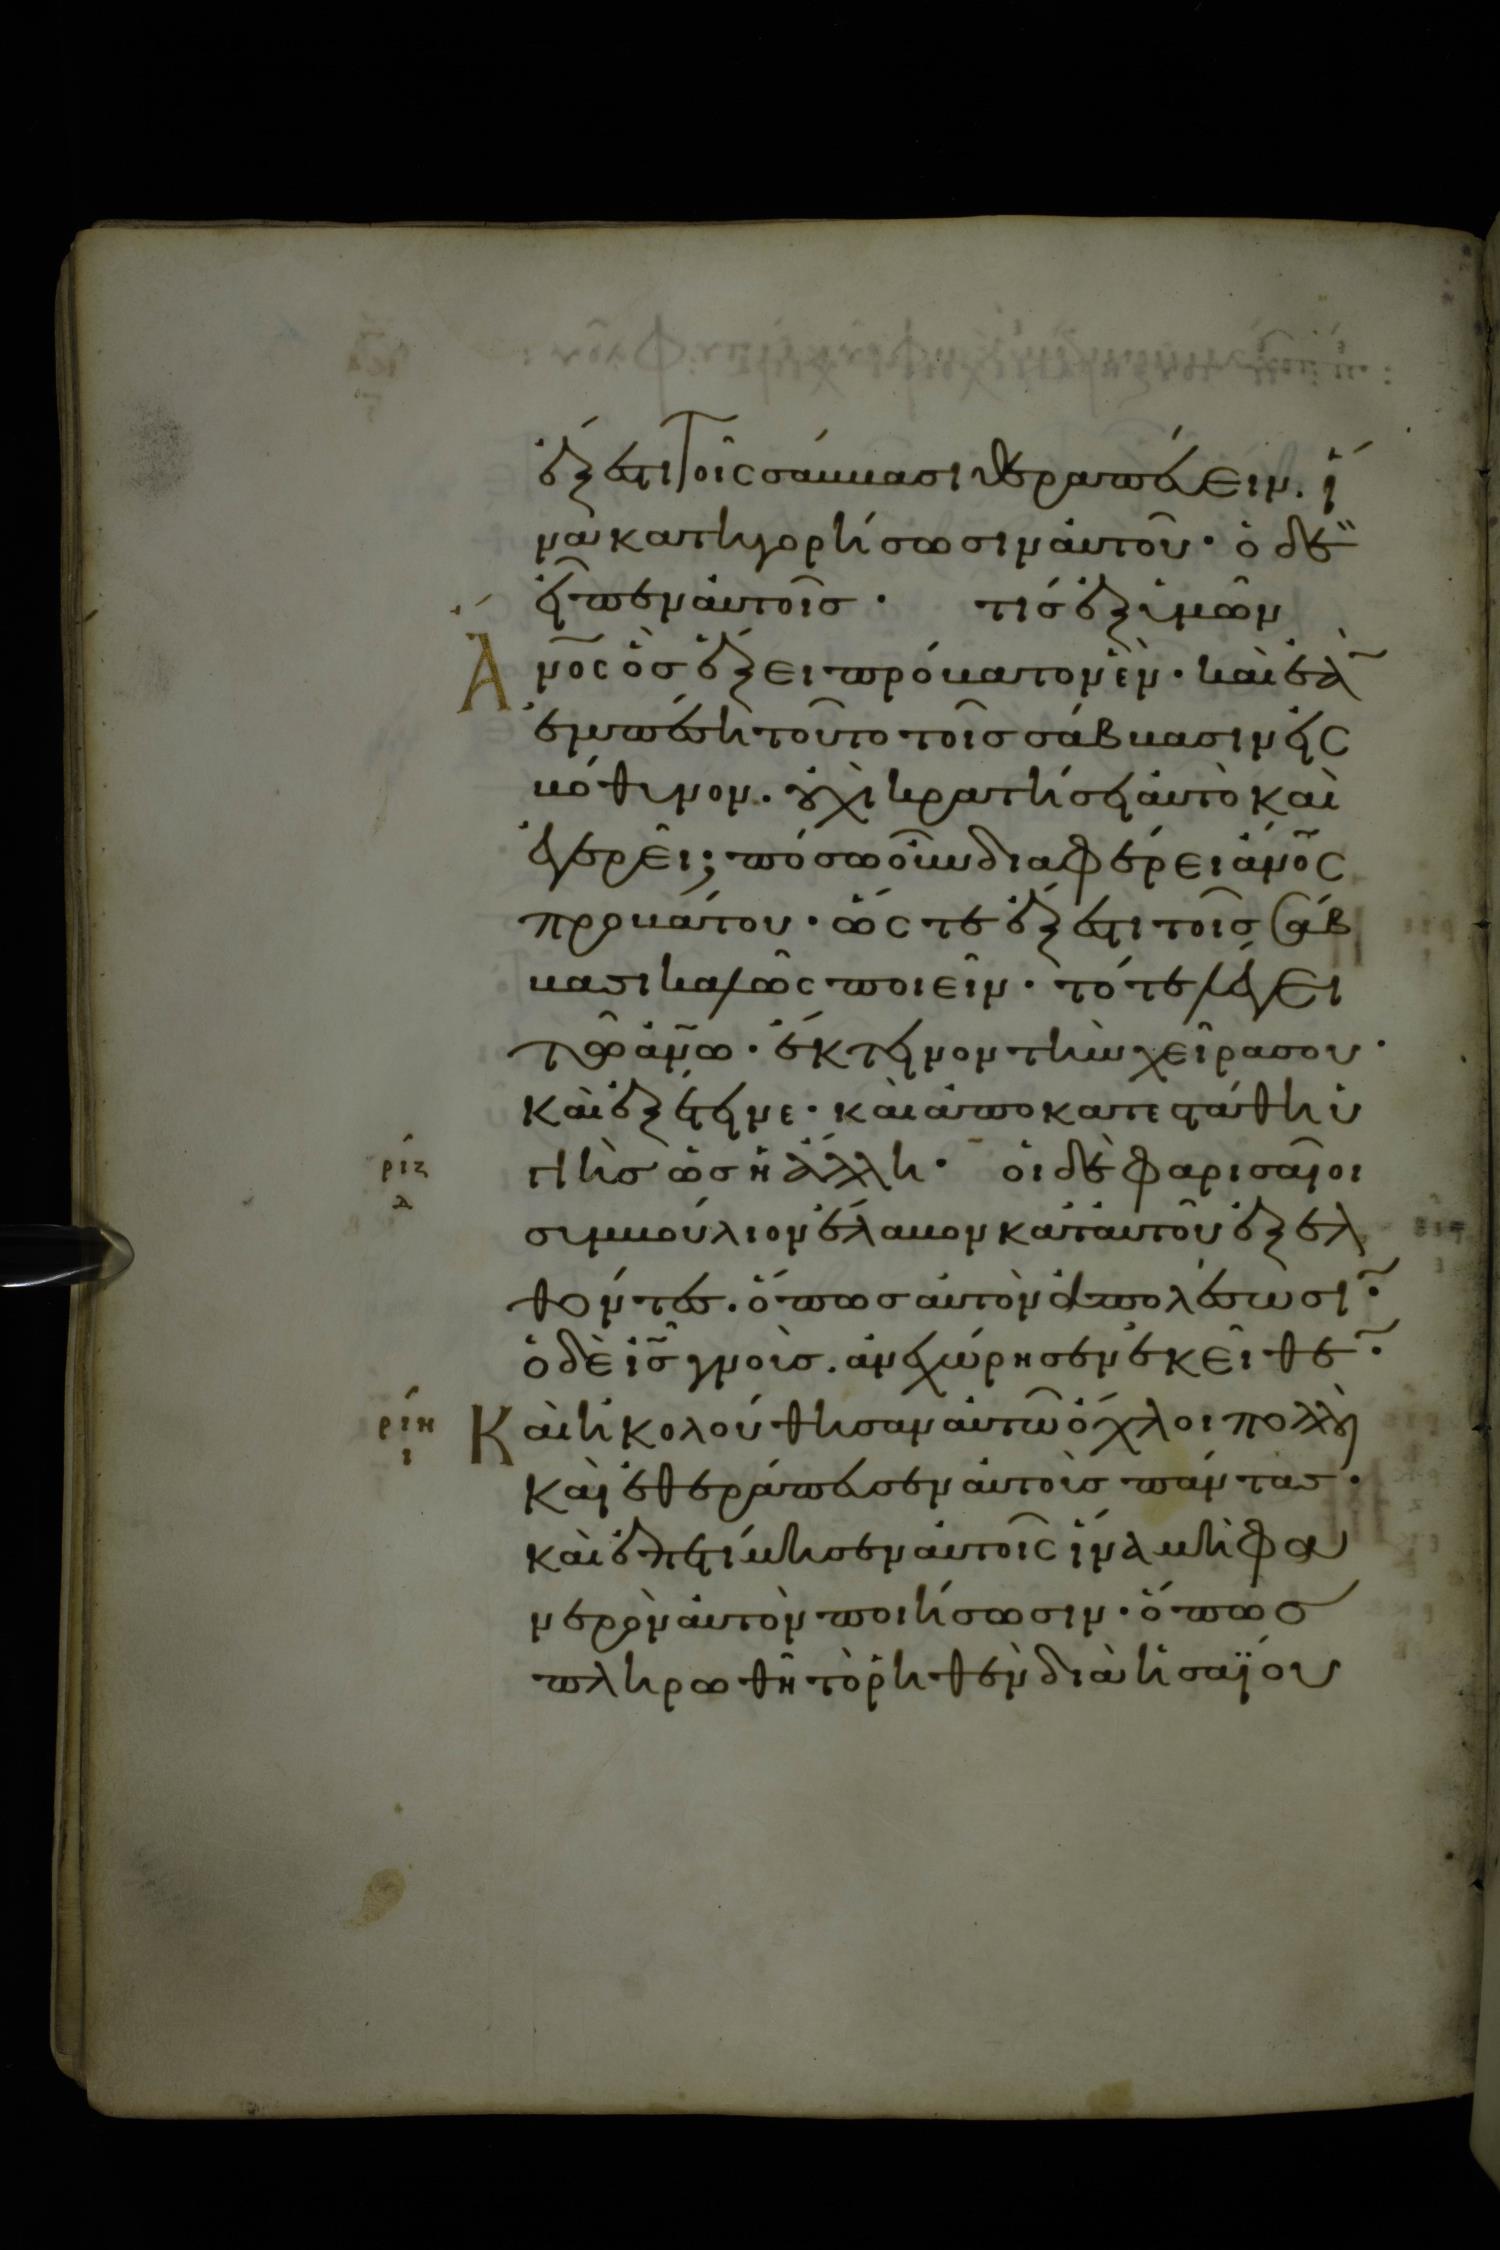 ἔξεστι τοῖς σάββασι θεραπεύειν. ἵ
να κατηγορήσωσιν αὐτοῦ· ὁ δὲ
εἶπεν αὐτοῖσ· τίσ ἐξ ὑμῶν
ἄνος ὃσ ἕξει πρόβατον ἓν· καὶ ἐὰ̄
ἐμπέση τοῦτο τοῖσ σάββασιν εἰς
βόθυνον. οὐχὶ κρατήσει αὐτὸ καὶ
ἐγερεῖ; πόσω οὖν διαφέρει ἄνος
προβάτου· ὥς τε ἔξεστι τοῖσ σάβ
βασι καλῶς ποιεῖν· τότε λέγει
τῶ ἀνω· ἔκτεινον τὴν χεῖρα σου·
καὶ ἐξέτεινε· καὶ ἀποκατεστάθη ὑ
ριζ
δ
γιὴσ ὡσ ἡ ἄλλη· οἱ δὲ φαρισαῖοι
συμβούλιον ἔλαβον κατ' αὐτοῦ ἐξελ
θόντεσ. ὅπωσ αὐτὸν ἀπολέσωσῑ·
ὁ δὲ ισ γνοὺσ. ἀνεχώρησεν ἐκεῖθε̄·
ριη
ι
Καὶ ἠκολούθησαν αὐτῶ ὄχλοι πολλοὶ
καὶ ἐθεράπευσεν αὐτοὺσ πάντασ·
καὶ ἐπετίμησεν αὐτοῖς ἵνα μὴ φα
νερὸν αὐτὸν ποιήσωσιν· ὅπωσ
πληρωθῆ τὸ ῥηθὲν διὰ ἠσαΐου